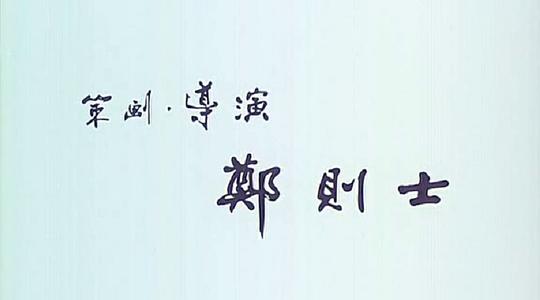 策劃·導演
鄭則士